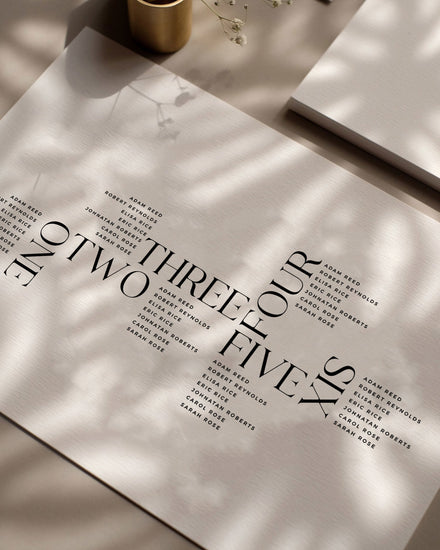 ONE
REYNOLDS
ELISA RICE
ERIC RICE
ROBERTS
ROSE
ROSE
TWO
ADAM REED
ROBERT REYNOLDS
ELISA RICE
ERIC RICE
JOHNATAN ROBERTS
CAROL ROSE
SARAH ROSE
THREE
ADAM REED
ROBERT REYNOLDS
ELISA RICE
ERIC RICE
JOHNATAN ROBERTS
CAROL ROSE
SARAH ROSE
FOUR
ADAM REED
ROBERT REYNOLDS
ELISA RICE
ERIC RICE
JOHNATAN ROBERTS
CAROL ROSE
SARAH ROSE
FIVE
ADAM REED
ROBERT REYNOLDS
ELISA RICE
ERIC RICE
JOHNATAN ROBERTS
CAROL ROSE
SARAH ROSE
SIX
ADAM REED
ROBERT REYNOLDS
ELISA RICE
ERIC RICE
JOHNATAN ROBERTS
CAROL ROSE
SARAH ROSE